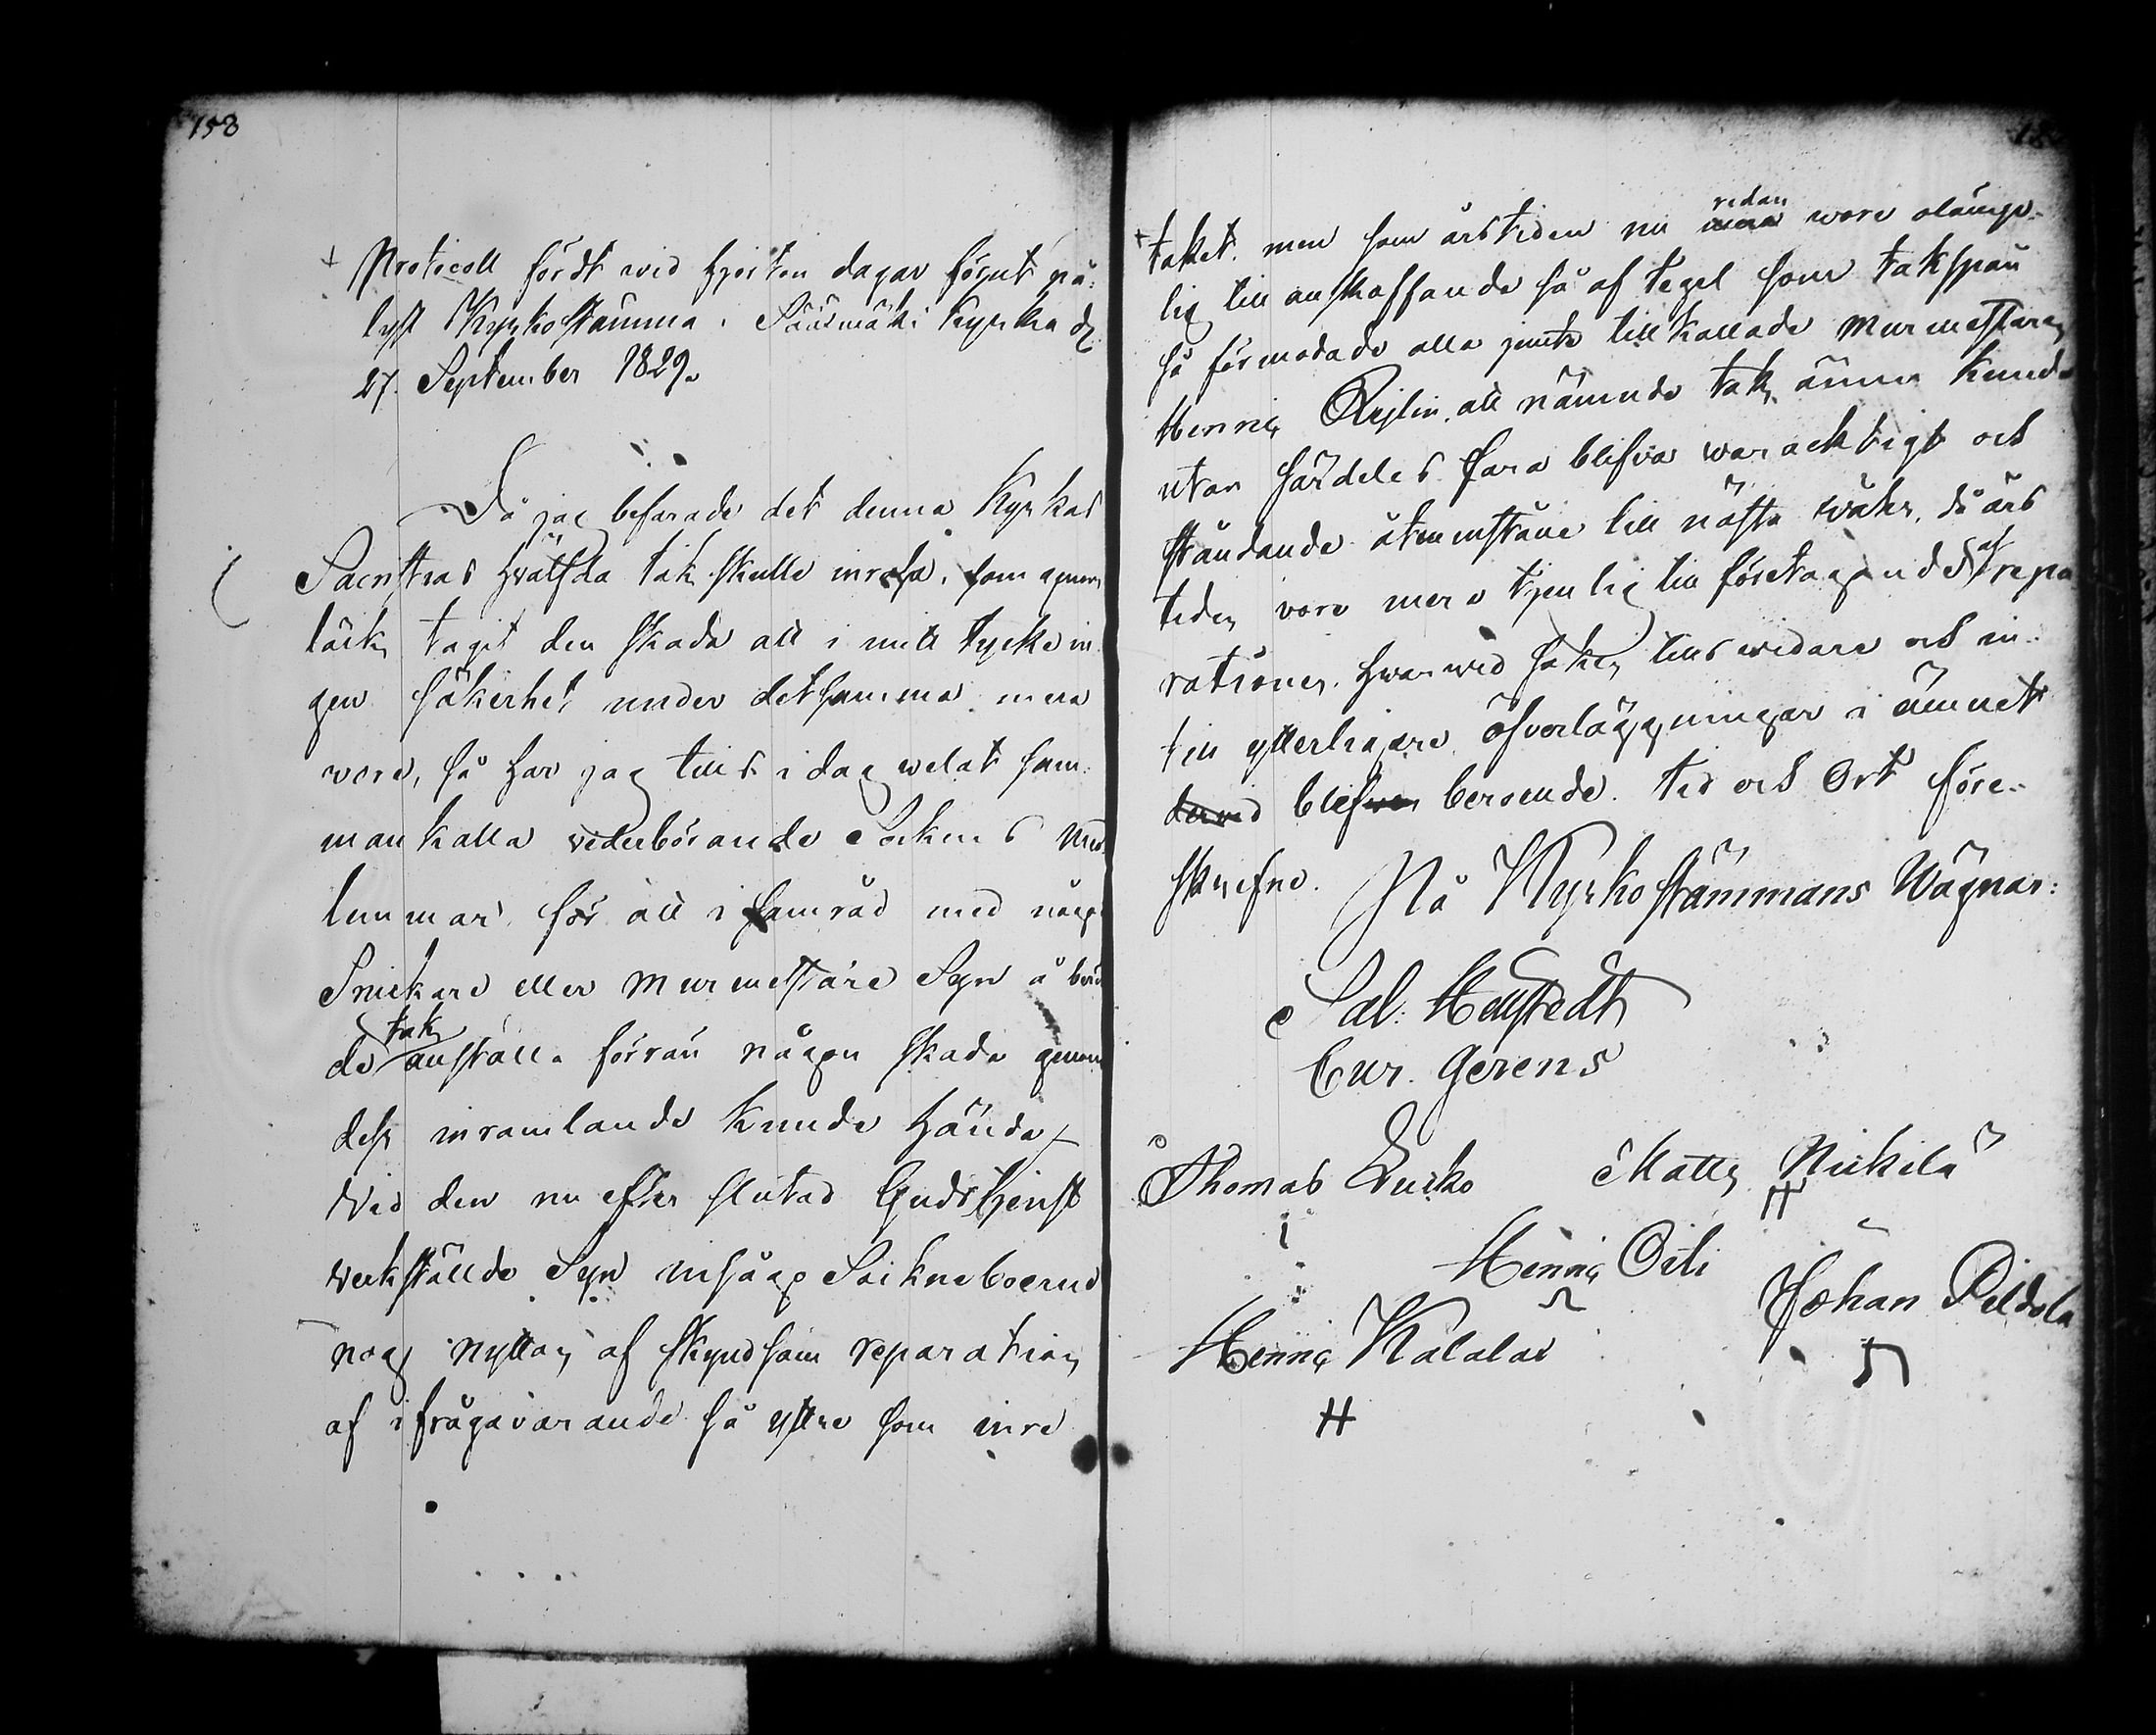 158
Protocoll fördt wid fjorton dagar förut på-
lyst Kyrkostämma i Säÿsmäki Kyrka d.
27. September 1829.
Då jag befarade det denna Kyrkas
Sacristias hwälfda tak skulle inrasa, som genom
läck tagit den skada att i mitt tycke in
gen säkerhet under detsamma mera
wore, så har jag tills i dag welat sam-
mankalla wederbörande Sockens Med-
lemmar för att i samråd med någon
Snickare eller Murmestare Syn å berör
tak
de anställa förrän någon skada genom
dess inramlande kunde hända,
Wid den nu efter slutad Gudstjenst
werkställde Syn insågo Sockneboerne
nog nyttan af skyndsam reparation
af ifrågavarande så yttre som inre
taket. men som årstiden nu redan wore olämpe-
lig till anskaffande så af Tegel som takspån
så förmodade alla jemte tillkallade Murmestaren
Henric att nämnde tak ännu kunde
utan särdeles fara blifva waracktigt och
ståndande åtminstone till nästa wåhr, då års
tiden vore mera tjenlig till företagande af repa
rationer. hwarwid saken tills widare och in-
till ytterligare öfverläggningar i ämnet
derwid blefwen beroende. tid och Ort före-
skrefne.
På Kyrkostämmans Wägnar:
Sal: Hellstedt
Cur. Gerens
Thomas Eurko Matts Nickilä
Henric Oili
Johan Pildola
Henric Kalalax